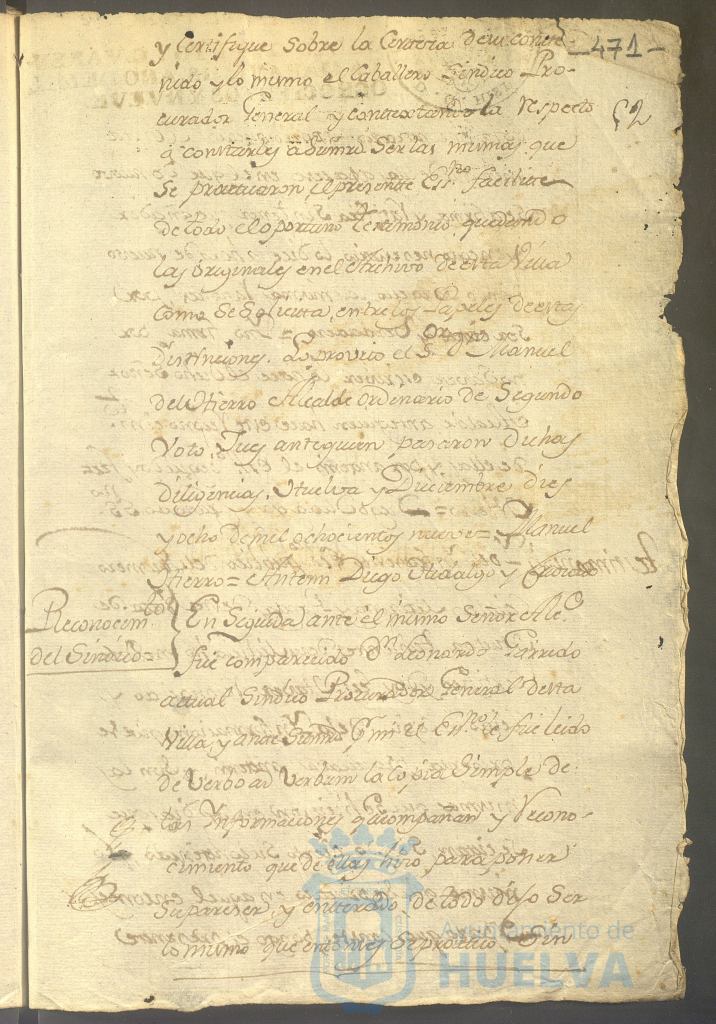 -471-
52
y Certifique sobre la Certeza de su conte-
nido y lo mismo el Caballero Sindico Pro-
curador General y contextando la respecto
á constarles adbitrio ser las mismas que
se practicaron, el presente Essno. facilite
de todo el oportuno testimonio quedando
las originales en el Archivo de esta Villa
como se solicita, entre los Papeles de estas
Distinciones. Lo proveio el Sr. Dn. Manuel
del Hierro Alcalde ordinario de Segundo
Voto, Jues ante quien pasaron dichas
diligencias, Huelva y Diciembre dies
y ocho de mil ochocientos nueve = Manuel
Hierro = Antemi Diego Hidalgo y
Reconocimto.
del Sindico =
En Seguida ante el mismo Señor Alce.
fue comparecido Dn. Leonardo Garrido
actual Sindico Procurador General desta
Villa, y ante Su md. Pr. mi el Essno. le fue leido
de Verbo ad Verbum la Copia Simple de
las Informaciones q. acompañan y Recono-
cimiento que de ellas hizo para poner
su pareser, y enterado de todo dijo Ser
lo mismo que entonses se practicó, Sin
Ayuntamiento de
HUELVA